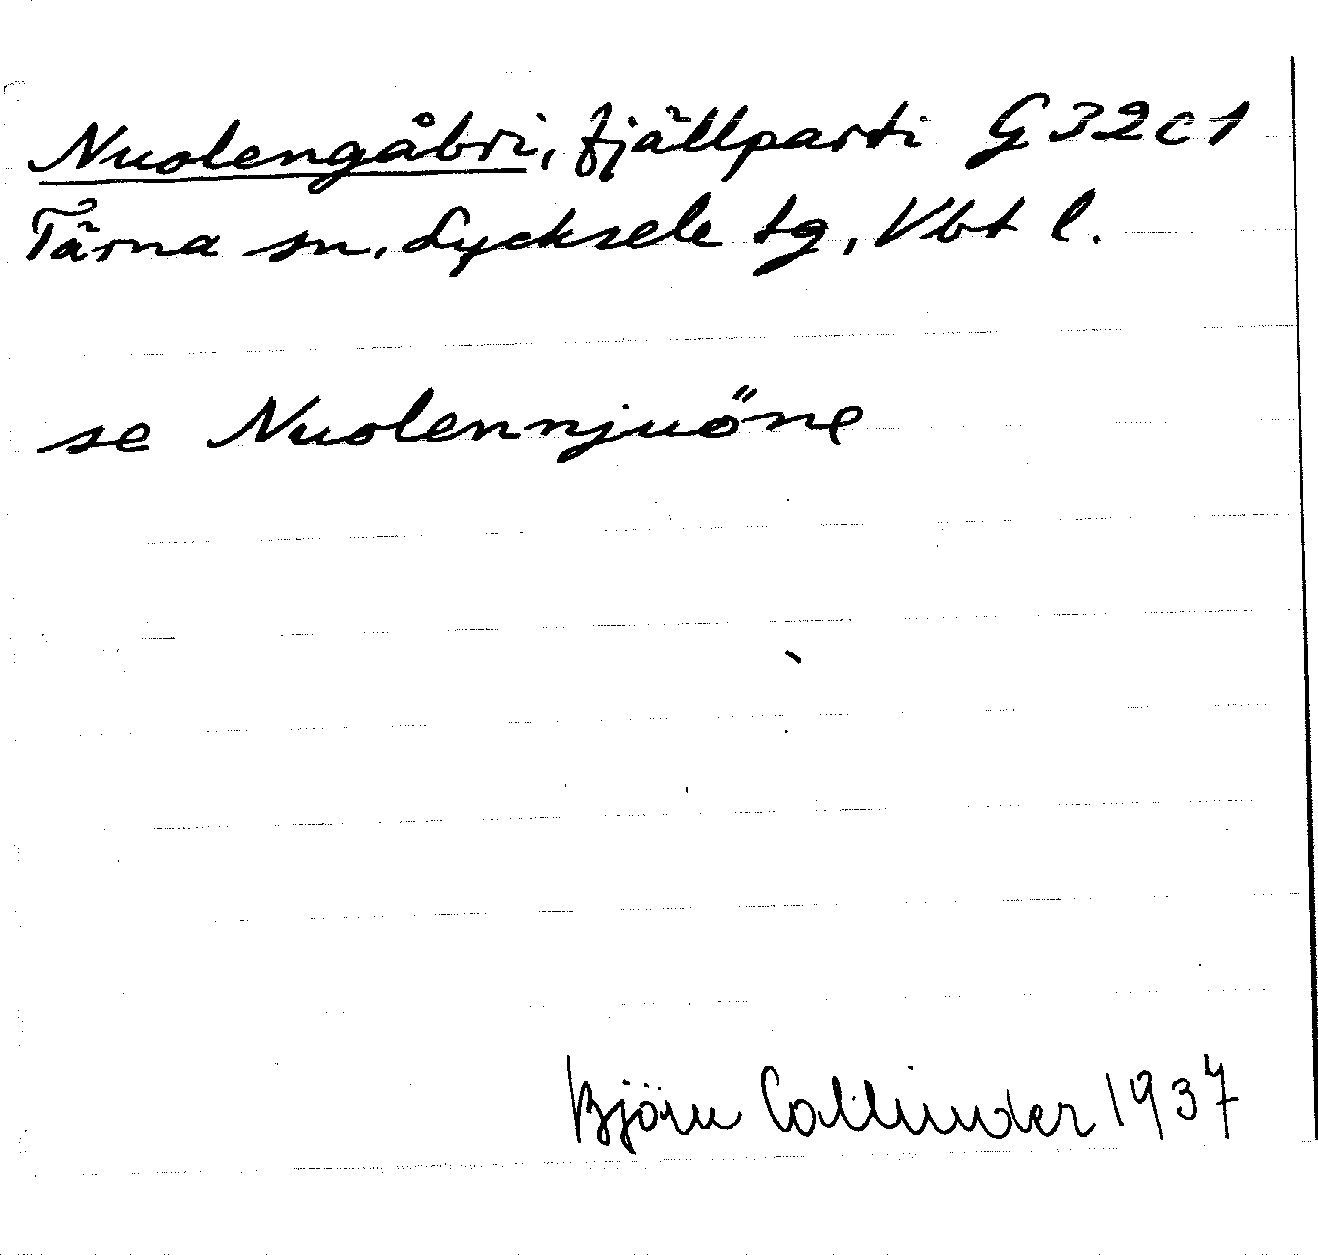 Nuolengåbri, fjällparti G 32 c 1
Tärna sn, Lycksele tg, Vbt l.
se Nuolennjuöne
Björn Collinder 1937